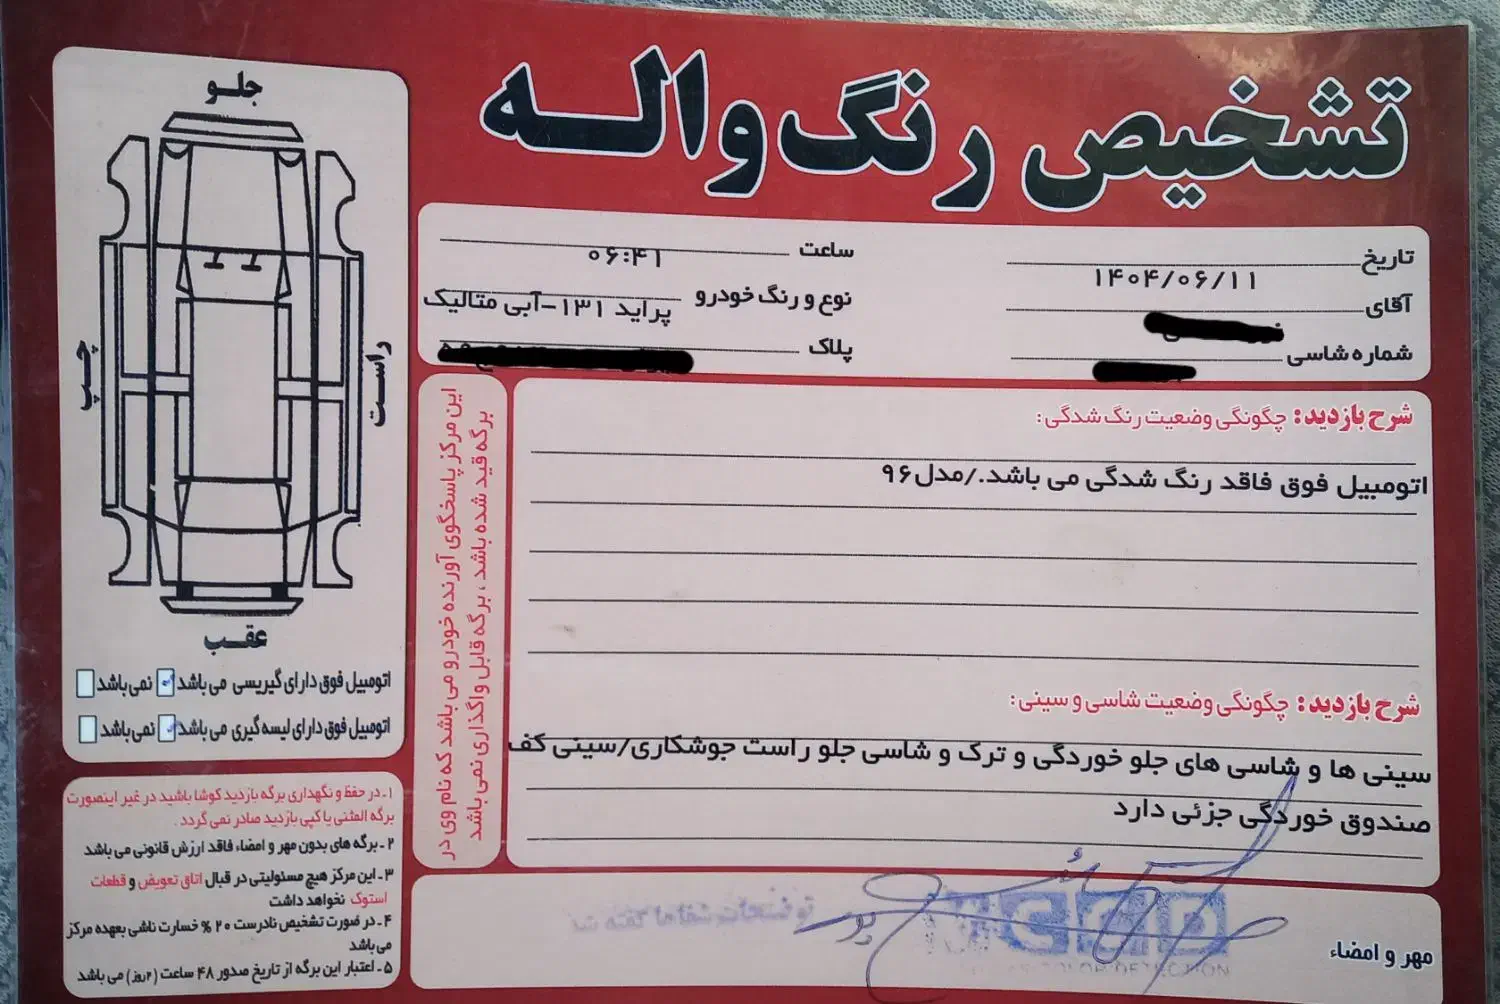 تشخیص رنگ واله
تاریخ ۱۴۰۴/۰۶/۱۱
ساعت ۰۶:۴۱
آقای
نوع و رنگ خودرو پراید ۱۳۱-آبی متالیک
شماره شاسی
پلاک
شرح بازدید: چگونگی وضعیت رنگ شدگی:
اتومبیل فوق فاقد رنگ شدگی می باشد./مدل۹۶
شرح بازدید: چگونگی وضعیت شاسی و سینی:
سینی ها و شاسی های جلو خوردگی و ترک و شاسی جلو راست جوشکاری/سینی کف
صندوق خوردگی جزئی دارد
مهر و امضاء
توضیحات شفاها گفته شد
COLOR DETECTION
این مرکز پاسخگوی آورنده خودرو می باشد که نام وی در
برگه قید شده باشد ، برگه قابل واگذاری نمی باشد
جلو
چپ
راست
عقب
اتومبیل فوق دارای گیریسی می باشد نمی باشد
اتومبیل فوق دارای لیسه گیری می باشد نمی باشد
۱ـ در حفظ و نگهداری برگه بازدید کوشا باشید در غیر اینصورت
برگه المثنی یا کپی بازدید صادر نمی گردد .
۲ ـ برگه های بدون مهر و امضاء فاقد ارزش قانونی می باشد
۳ ـ این مرکز هیچ مسئولیتی در قبال اتاق تعویض و قطعات
استوک نخواهد داشت
۴ ـ در صورت تشخیص نادرست ۲۰ % خسارت ناشی بعهده مرکز
می باشد
۵ ـ اعتبار این برگه از تاریخ صدور ۴۸ ساعت (۲روز) می باشد